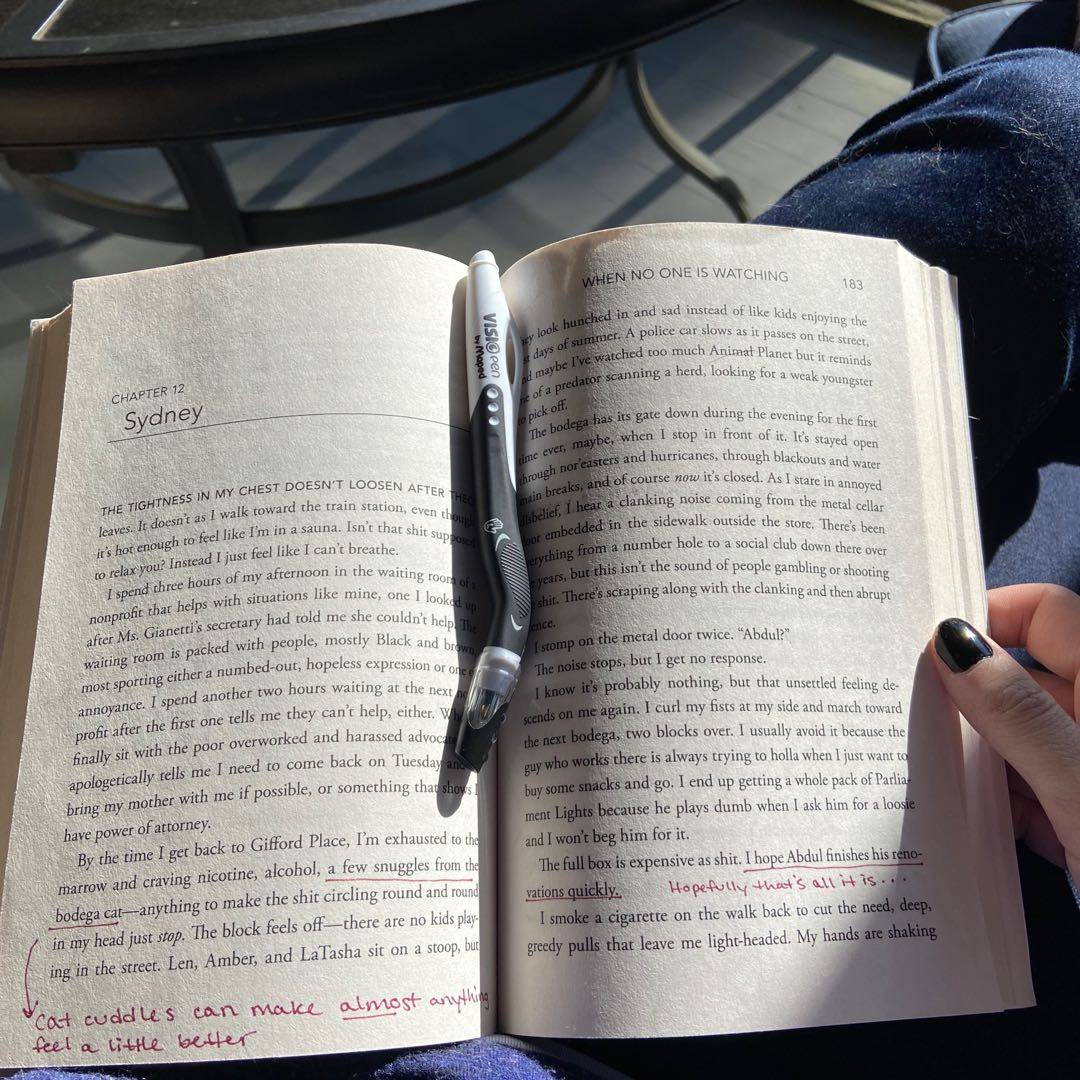 CHAPTER 12
Sydney
THE TIGHTNESS IN MY CHEST DOESN'T LOOSEN AFTER
leaves. It doesn't as I walk toward the train station, even though
it's hot enough to feel like I'm in a sauna. Isn't that shit supposed
to relax you? Instead I just feel like I can't breathe.
I spend three hours of my afternoon in the waiting room of a
nonprofit that helps with situations like mine, one I looked up
after Ms. Gianetti's secretary had told me she couldn't help. The
waiting room is packed with people, mostly Black and brown,
most sporting either a numbed-out, hopeless expression or one of
annoyance. I spend another two hours waiting at the next
profit after the first one tells me they can't help, either.
finally sit with the poor overworked and harassed
apologetically tells me I need to come back on Tuesday and
bring my mother with me if possible, or something that shows I
have power of attorney.
By the time I get back to Gifford Place, I'm exhausted to the
marrow and craving nicotine, alcohol, a few snuggles from the
bodega cat—anything to make the shit circling round and round
in my head just stop. The block feels off—there are no kids play-
ing in the street. Len, Amber, and LaTasha sit on a stoop, but
Cat cuddles can make almost anything
feel a little better
VISIO pen
by Maped
WHEN NO ONE IS WATCHING 183
look hunched in and sad instead of like kids enjoying the
days of summer. A police car slows as it passes on the street,
and maybe I've watched too much Animal Planet but it reminds
me of a predator scanning a herd, looking for a weak youngster
to pick off.
The bodega has its gate down during the evening for the first
time ever, maybe, when I stop in front of it. It's stayed open
through nor'easters and hurricanes, through blackouts and water
main breaks, and of course now it's closed. As I stare in annoyed
disbelief, I hear a clanking noise coming from the metal cellar
door embedded in the sidewalk outside the store. There's been
everything from a number hole to a social club down there over
years, but this isn't the sound of people gambling or shooting
shit. There's scraping along with the clanking and then abrupt
I stomp on the metal door twice. "Abdul?"
The noise stops, but I get no response.
I know it's probably nothing, but that unsettled feeling de-
scends on me again. I curl my fists at my side and march toward
the next bodega, two blocks over. I usually avoid it because the
guy who works there is always trying to holla when I just want to
buy some snacks and go. I end up getting a whole pack of Parlia-
ment Lights because he plays dumb when I ask him for a loosie
and I won't beg him for it.
The full box is expensive as shit. I hope Abdul finishes his reno-
vations quickly. Hopefully that's all it is...
I smoke a cigarette on the walk back to cut the need, deep,
greedy pulls that leave me light-headed. My hands are shaking